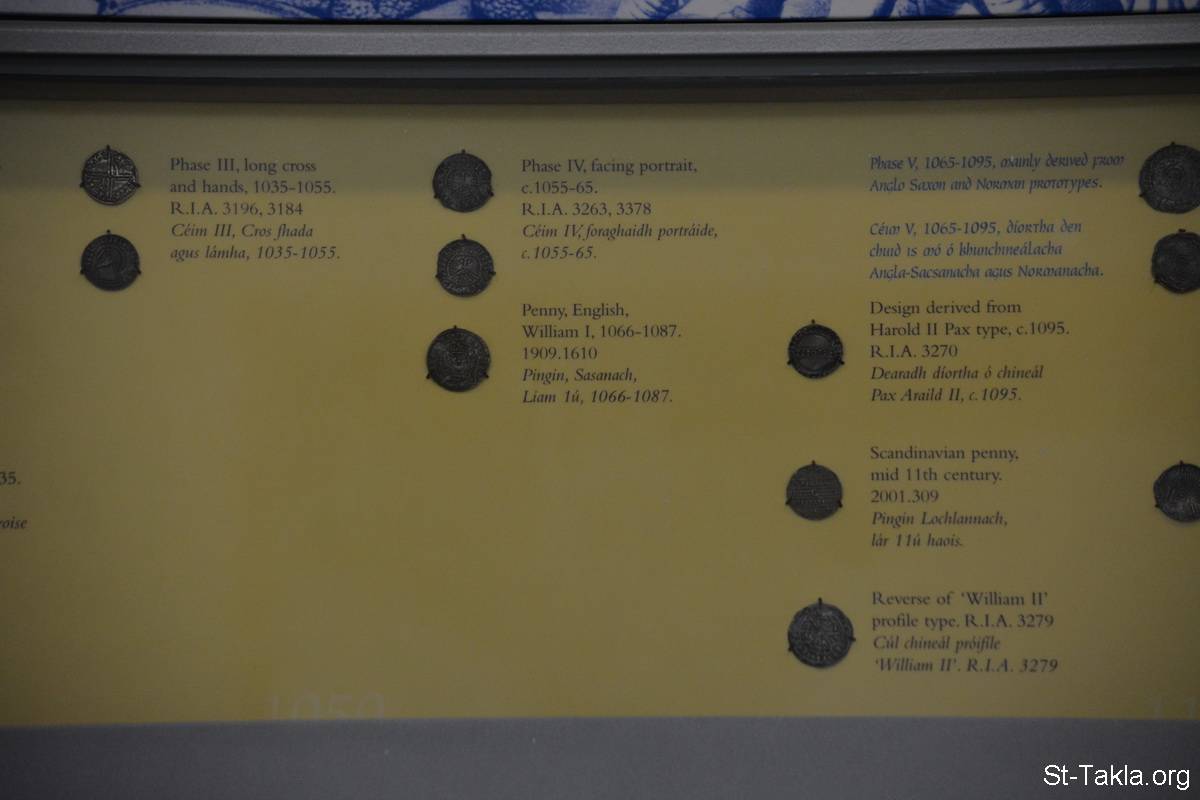 35.
oise
Phase III, long cross
and hands, 1035-1055.
R.I.A. 3196, 3184
Céim III, Cros fhada
agus lámha, 1035-1055.
Phase IV, facing portrait,
c.1055-65.
R.I.A. 3263, 3378
Céim IV, foraghaidh portráide,
c.1055-65.
Penny, English,
William I, 1066-1087.
1909.1610
Pingin, Sasanach,
Liam 1ú, 1066-1087.
Phase V, 1065-1095, mainly derived from
Anglo Saxon and Norman prototypes.
Céim V, 1065-1095, díortha den
chuid is mó ó bhunchineálacha
Angla-Sacsanacha agus Normanacha.
Design derived from
Harold II Pax type, c.1095.
R.I.A. 3270
Dearadh díortha ó chineál
Pax Araild II, c.1095.
Scandinavian penny,
mid 11th century.
2001.309
Pingin Lochlannach,
lár 11ú haois.
Reverse of 'William II'
profile type. R.I.A. 3279
Cúl chineál próifíle
'William II'. R.I.A. 3279
1050
St-Takla.org